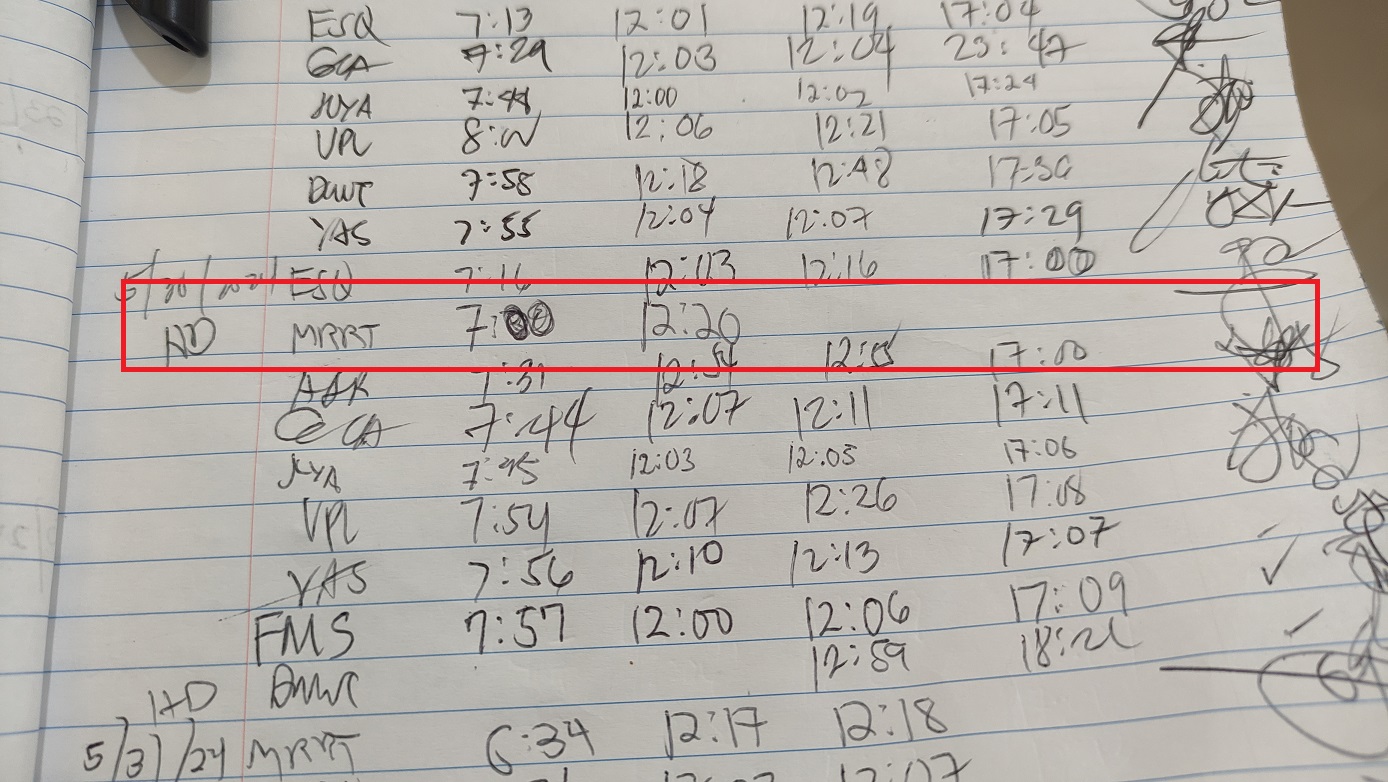 ESQ 7:13 12:01 12:19 17:04
GCA 7:29 12:03 12:04 23:47
JUYA 7:44 12:00 12:02 17:24
VPL 8:00 12:06 12:21 17:05
DWT 7:58 12:18 12:48 17:30
YAS 7:55 12:04 12:07 17:29
5/30/2024 ESQ 7:16 12:03 12:16 17:00
HD MRRT 7:00 12:20
AAR 7:31 12:54 12:55 17:00
GCA 7:44 12:07 12:11 17:11
7:45 12:03 12:05 17:06
VPL 7:54 12:07 12:26 17:08
YAS 7:56 12:10 12:13 17:07
FMS 7:57 12:00 12:06 17:09
HD 12:59
5/31/24 MRRT 6:34 12:17 12:18
12:07